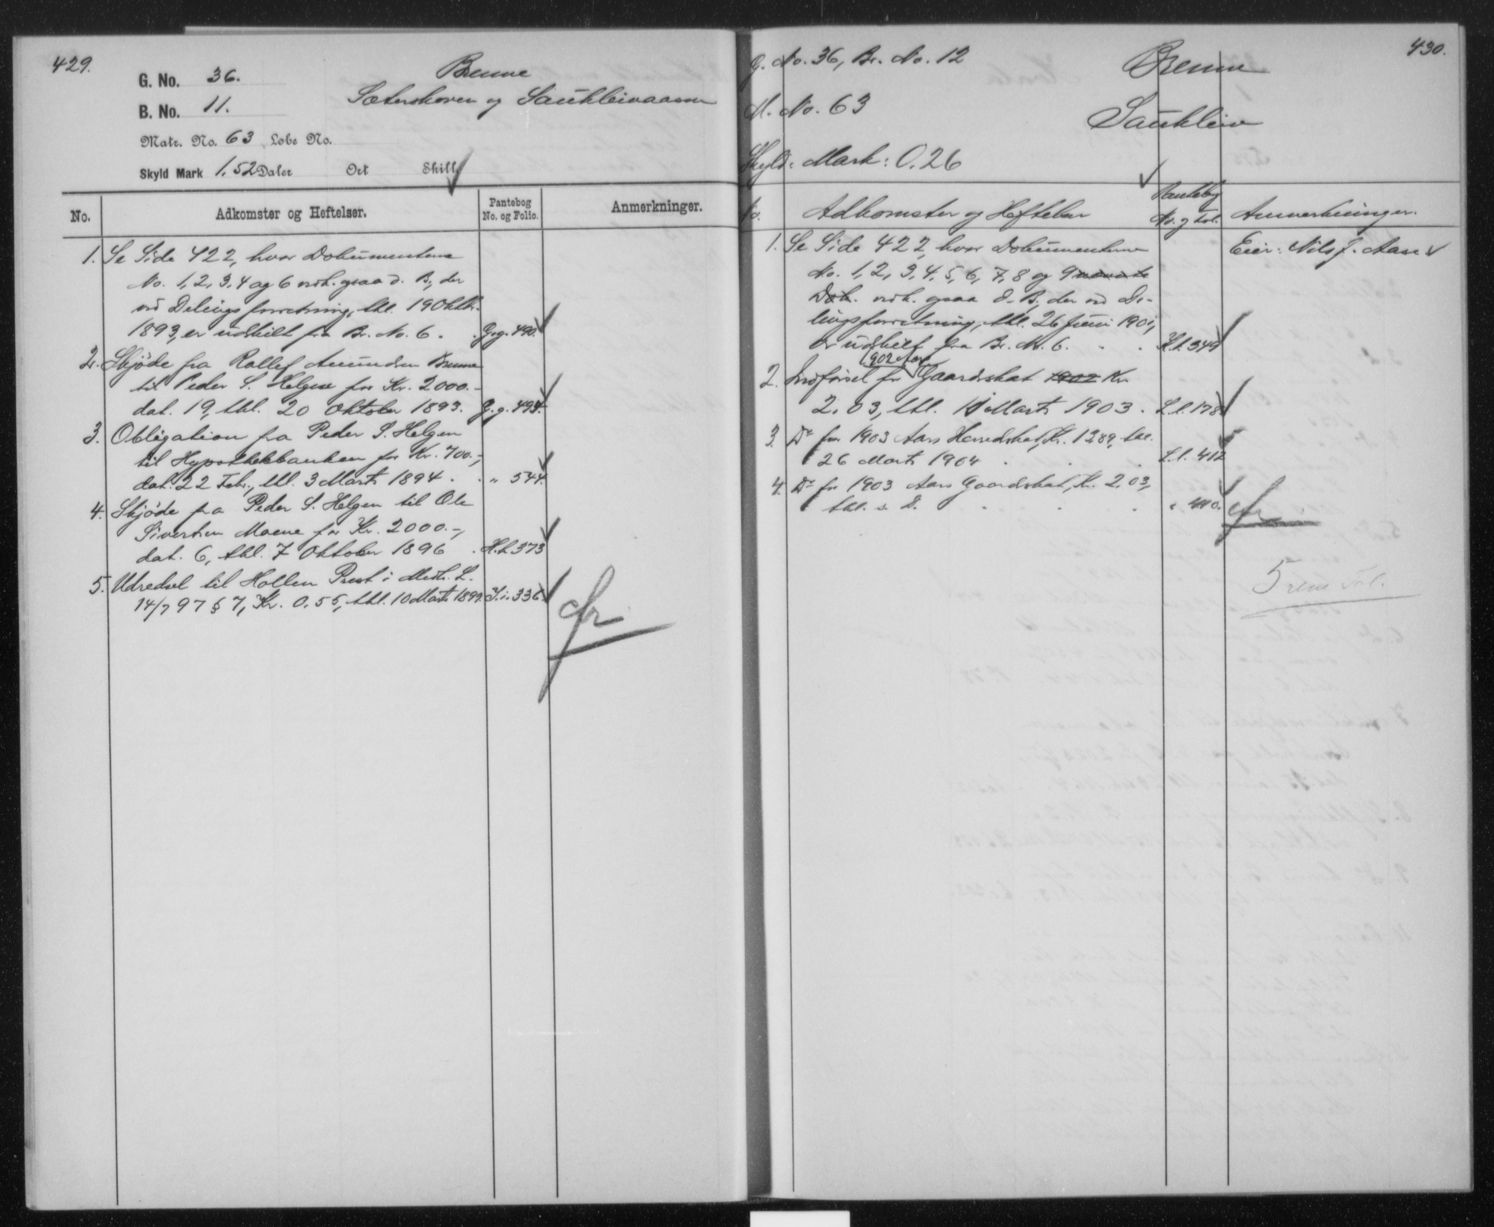 429.
G. No. 36.
Brenne
B. No. 11.
Sæterskoven og Saukleivaasen
Matr. No. 63, Løbe No.
Skyld Mark 1.52 Daler Ort Skill.
No. Adkomster og Heftelser. Pantebog No. og Folio. Anmerkninger.
1. Se Side 422, hvor Dokumenterne
No. 1, 2, 3, 4 og 6 vedk. ogsaa d. B., der
ved Delings forretning, thl. 19 Oktb.
1893, er udskilt fra Br. No. 6. G.g. 490.
2. Skjøde fra Rollef Amundsen Brenne
til Peder S. Helgen for Kr. 2000.-
dat. 19, thl. 20 Oktober 1893. G.g. 494.
3. Obligation fra Peder S. Helgen
til Hypothekbanken for Kr. 700.-,
dat. 22 Feb., thl. 3 Marts 1894. " 544
4. Skjøde fra Peder S. Helgen til Ole
Sivertsen Moene for Kr. 2000.-,
dat. 6, thl. 7 Oktober 1896. H.h. 373
5. Udredsel til Hollen Præst i Meth. L.
14/7 97 § 7, Kr. 0.55, thl. 10 Marts 1899. I.i. 336
ofr
430.
G. No. 36, Br. No. 12
Brenne
M. No. 63
Saukleiv
Skyld: Mark: 0.26
No. Adkomster og Heftelser Pantebog No. og Fol. Anmerkninger.
1. Se Side 422, hvor Dokumenterne Eier: Nils J. Aase
No. 1, 2, 3, 4, 5, 6, 7, 8 og 9
Dok. vedk. ogsaa d. B., der ved De-
lingsforretning, thl. 26 Juni 1901,
er udskilt fra Br. No. 6. K.k. 349
1902 Aars
2. Indførsel for Gaardskat 1902 Kr.
2.03, thl. 11 Marts 1903. L.l. 178
3. Do for 1903 Aars Herredskat, Kr. 1389, thl.
26 Marts 1904 L.l. 412
4. Do for 1903 Aars Gaardskat, Kr. 2.03,
thl. s. D. " 440.
ofr
5